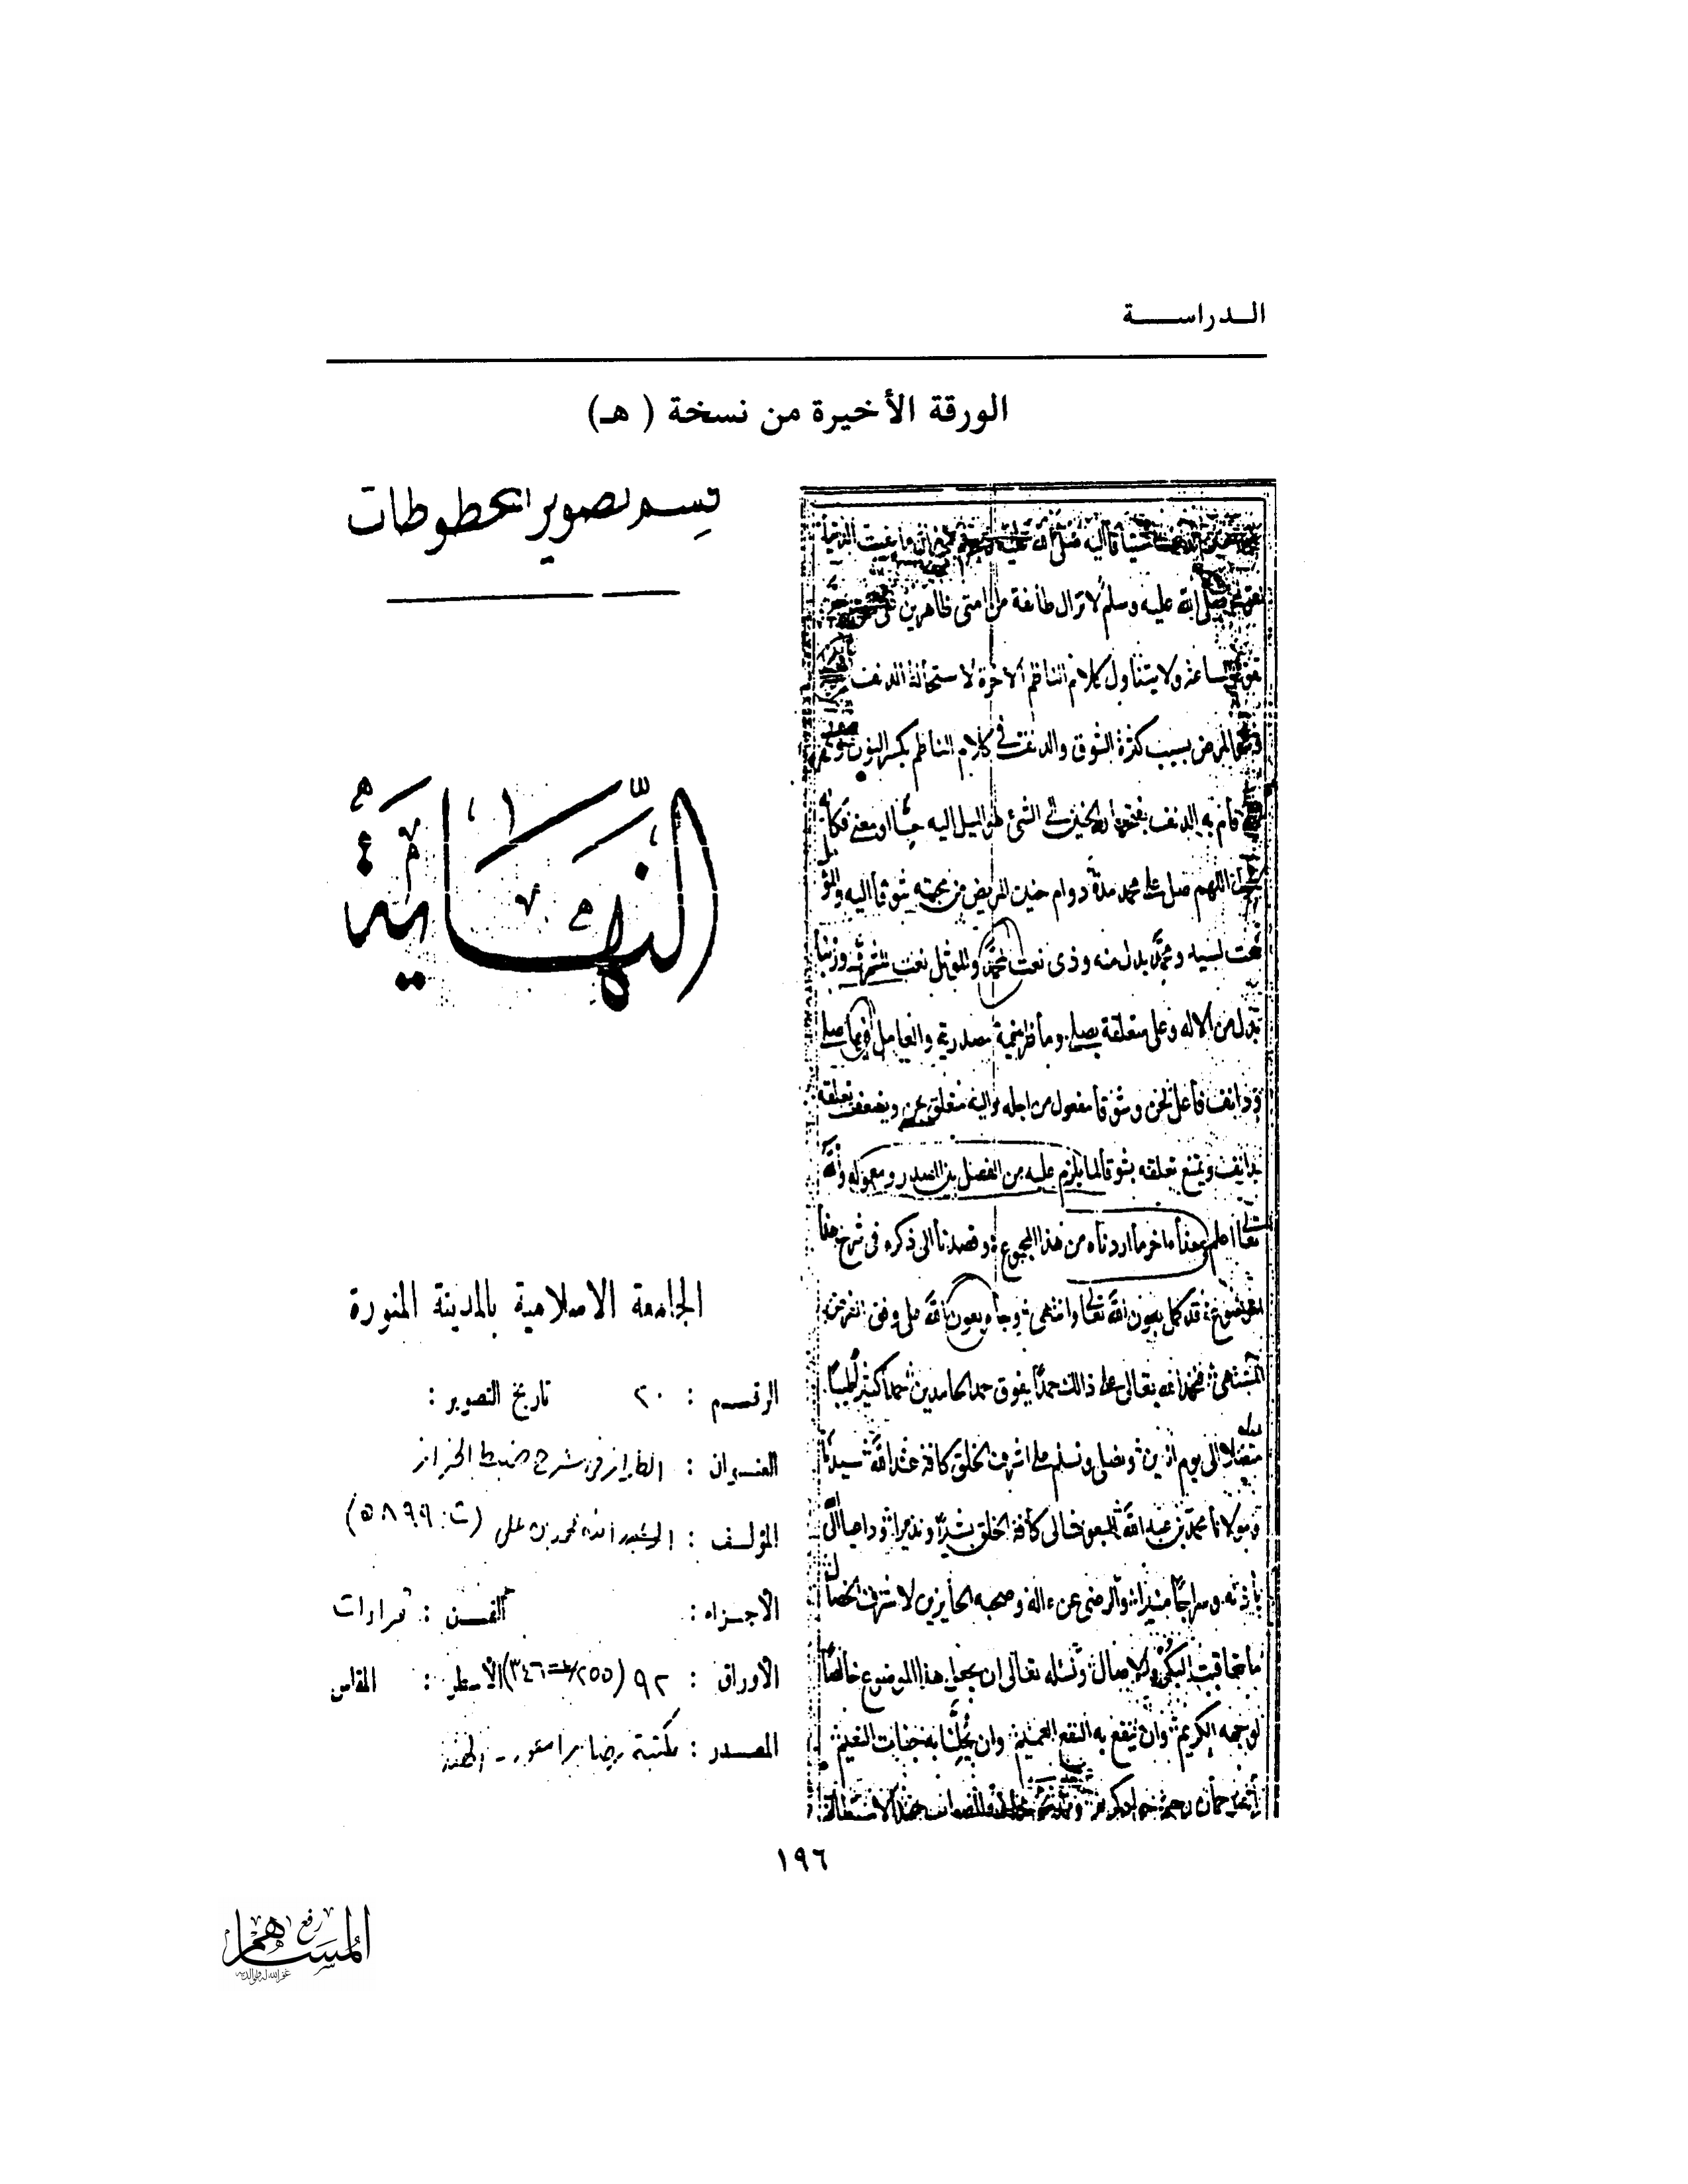 الـدراســـة
الورقة الأخيرة من نسخة ( هـ)
صلى الله عليه وسلم لا تزال طائفة من امتى ظاهرين
الساعة ولا يتناول كلام الناظم الاخرة لاستحالة الدنف
المرض بسبب كثرة الشوق والدنف في كلام الناظم بكسر النون
قام به الدنف بفتحها والحنين الى الشئ هو الميل اليه حسا او معنى فكأنه
اللهم صل على محمد مدة دوام حنين المريض من محبته شوقا اليه
نعت لسيد ومحمد بدل منه وذى نعت لمحمد والمؤثل نعت للشرف وربنا
بدل من الاله وعلى متعلقة بصلى وما ظرفية مصدرية والعامل فيها صلى
ودانف فاعل لحن وشوقا مفعول من اجله واليه متعلق بحن ويضعف تعلقه
بدانف ويمنع تعلقه بشوقا لما يلزم عليه من الفصل بين المصدر ومعموله والله
تعالى اعلم وهذا ما اردناه من هذا المجموع وقصدنا الى ذكره فى شرح هذا
قد كمل بعون الله تعالى وانتهى وجا وبعون الله على وفق الغرض
المشتهى فنحمد الله تعالى على ذالك حمدا يفوق حمد الحامدين حمدا كثيرا طيبا
متصلا الى يوم الدين ونصلى ونسلم على اشرف الخلق كافة عند الله سيدنا
ومولانا محمد بن عبد الله المبعوث الى كافة الخلق بشيرا ونذيرا وداعيا الى الله
باذنه وسراجا منيرا والرضى عن ءاله وصحبه الحايزين لاشرف الخصال
ما تعاقبت البكر والاصال ونسئله تعالى ان يجعل هذا الموضوع خالصا
لوجهه الكريم وان ينفع به النفع العميم وان يحلنا به جنات النعيم
قسم تصوير المخطوطات
النهاية
الجامعة الاسلامية بالمدينة المنورة
الرقم : ٢٠ تاريخ التصوير :
العنوان : الطراز فى شرح ضبط الخراز
المؤلف : محمد بن على (ت: ٨٩٩ه)
الاجزاء : الفن : قراءات
الاوراق : ٩٢ الأسطر : المقاس
المصدر : مكتبة رضا برامفور - الهند
١٩٦
رفع
المساهم
غفر الله له ولوالديه